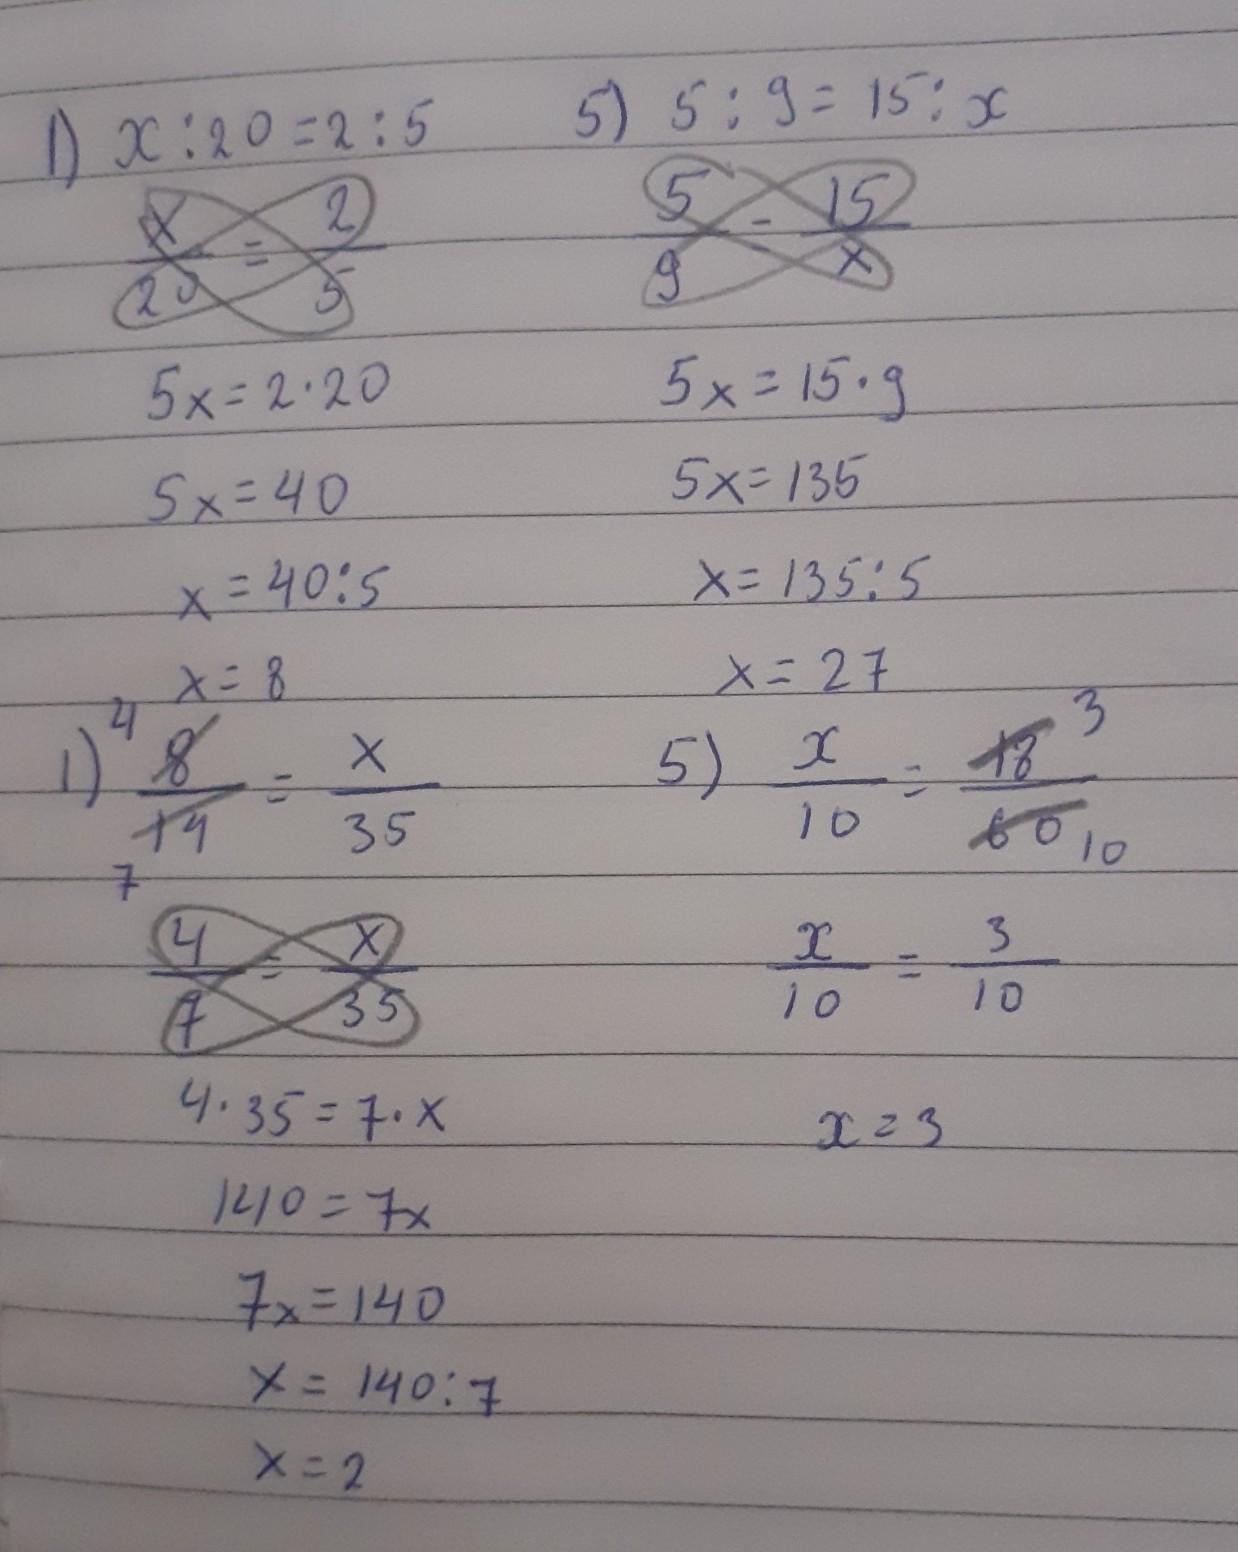 1) x : 20 = 2 : 5
x/20 = 2/5
5x = 2 · 20
5x = 40
x = 40 : 5
x = 8
5) 5 : 9 = 15 : x
5/9 = 15/x
5x = 15 · 9
5x = 135
x = 135 : 5
x = 27
1) 4 8/14 7 = x/35
4/7 = x/35
4 · 35 = 7 · x
140 = 7x
7x = 140
x = 140 : 7
x = 2
5) x/10 = 18/60 3 10
x/10 = 3/10
x = 3